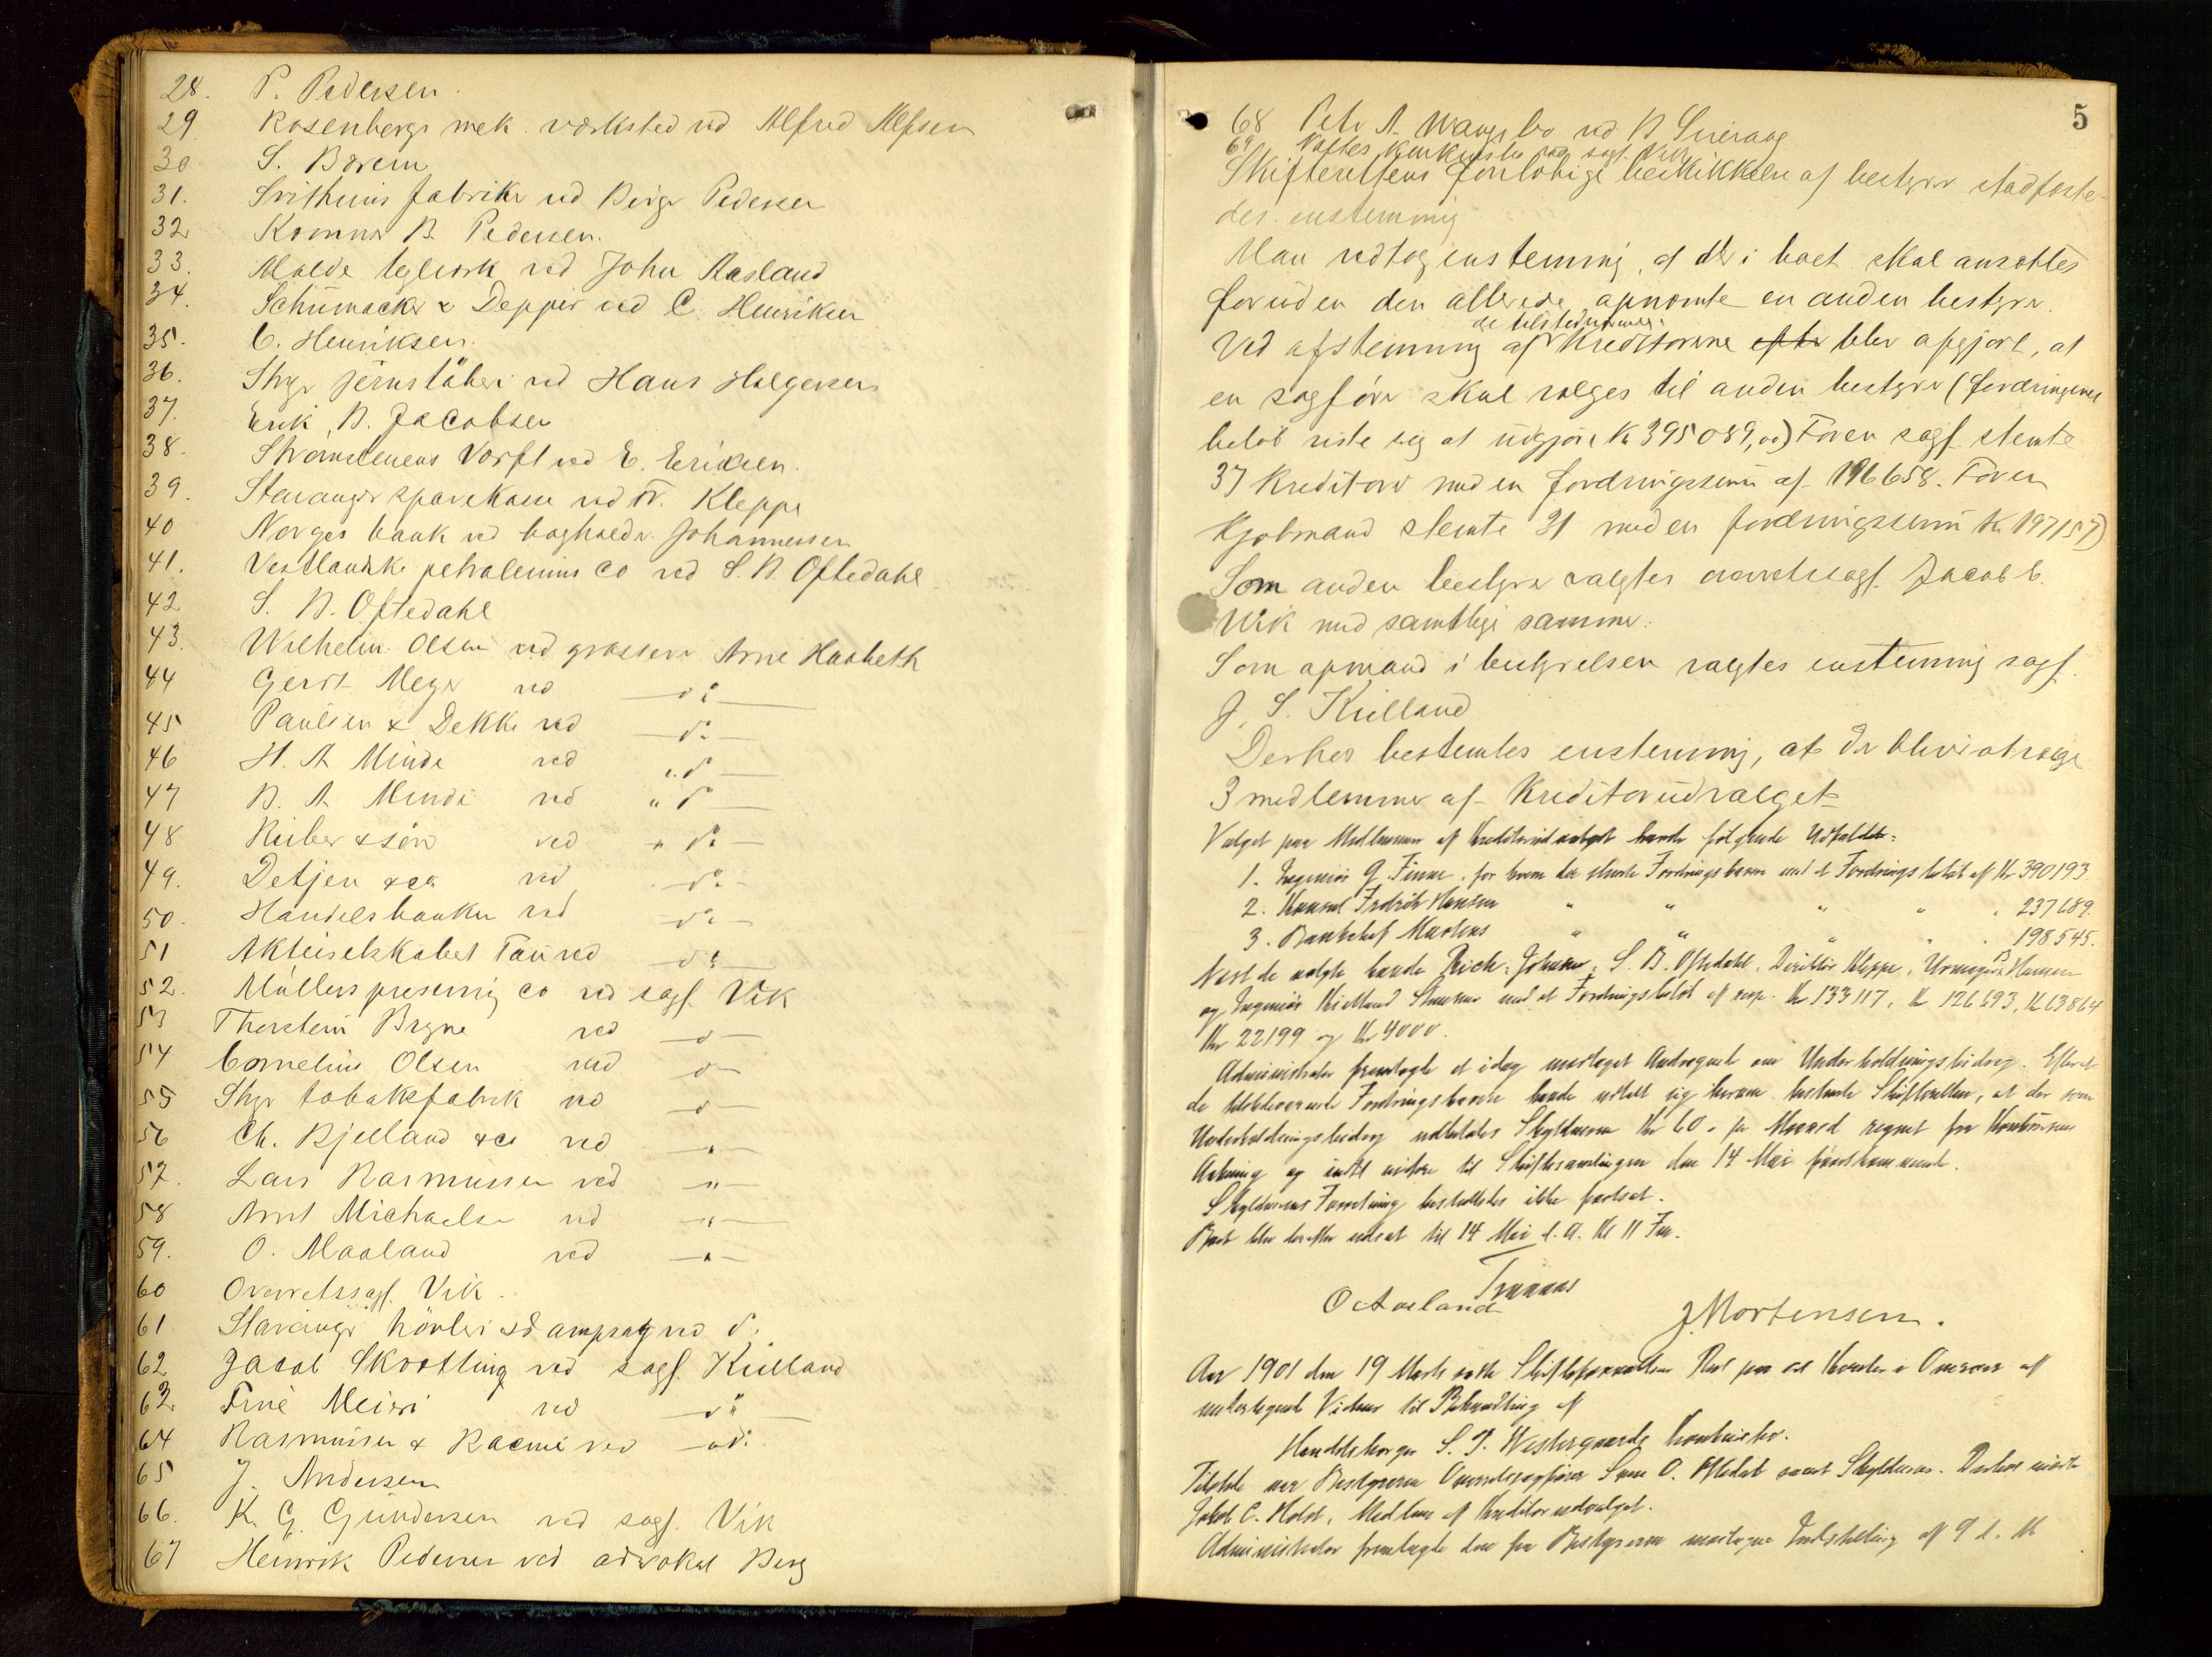 28. P. Pedersen.
29. Rosenbergs mek. værksted ved Alfred Alfsen
30. S. Borem
31. Svithuns fabrikker ved Birger Pedersen
32. B. Pedersen.
33. Malde teglværk ved John Aasland
34. Schumacker & Depper ved C. Henriksen
35. C. Henriksen.
36. Stvgr jernstöberi ved Hans Holgersen
37. Erik B. Jacobsen
38. Strömstenens Værft ved E. Eriksen.
39. Stavanger sparekasse ved Kleppe
40 Norges bank ved bogholder Johannessen
41. Vestlandske petroleums co ved S. B. Oftedahl
42 S. B. Oftedahl
43. Wilhelm Olsen ved grosserer Arne Haabeth
44 Gerdt Meyer ved — do —
45 Paulsen & Dekke ved — do —
46 H. A. Minde ved " do —
47 B. A. Minde ved " do —
48 Rieber & sön ved " do —
49. Detjen & co ved — do —
50. Handelsbanken ved — do —
51 Aktieselskabet Tau ved — do —
52. Müllers presenning co ved sagf. Vik
53 Thorstein Bryne ved — o —
54 Cornelius Olsen ved — o —
55 Stvgr tobaksfabrik ved — o —
56 Ch. Bjelland & co ved — " —
57. Lars Rasmussen ved — " —
58 Arnt Michaelsen ved — " —
59. O. Maaland ved — " —
60 Overretssagf. Vik.
61 Stavanger hövleri & dampsag ved do
62 Jacob Skrötting ved sagf. Kielland
63. Meieri ved — do —
64 Rasmussen & Racine ved — do
65 J. Andersen
66. K. G. Gundersen ved sagf. Vik
67 Henrik Pedersen ved advokat Berg
5
68 Peter A. ved B.
69 ved sagf. Vik
Skifterettens forelöbige beskikkelse af bestyrer stadfæste-
des enstemmig
Man vedtog enstemmig, at der i boet skal ansættes
foruden den allerede opnævnte en anden bestyrer.
de tilstedeværende
Ved afstemning af Kreditorerne efter blev afgjort, at
en sagförer skal vælges til anden bestyrer (fordringernes
belöb viste sig at udgjöre Kr 395 089,00) For en sagf. stemte
37 Kreditorer med en fordringssum af 196 658. For en
Kjöbmand stemte 31 med en fordringssum Kr. 197157)
Som anden bestyrer valgtes overretssagf. Jacob C.
Wik med samtlige stemmer.
Som opmand i bestyrelsen valgtes enstemmig sagf.
J. S. Kielland
Derhos bestemtes enstemmig, at der bliver at vælge
3 medlemmer af Kreditorudvalget
Valget paa Medlemmer af Kreditorudvalget havde følgende Udfald:
1. Ingeniør G. Finne, for hvem der stemte Fordringshavere med et Fordringsbeløb af Kr 390193.
2. Konsul Fredrik Hansen " " " " 237689.
3. Bankchef Martens " " " " 198545.
Næst de valgte havde Rich. Johnsen, S. B. Oftedahl, Direktör Kleppe, Urmager B. Hansen
og Ingeniør Kielland med et Fordringsbeløb af resp. Kr 133117, Kr 126693, Kr 63864
Kr 22199 og Kr 4000.
Administrator fremlagte et idag modtaget Andragende om Underholdningsbidrag. Efterat
de tilstedeværende Fordringshavere havde udtalt sig herom bestemte Skifteretten, at der som
Underholdningsbidrag udbetales Skyldneren Kr 60 pr Maaned regnet fra Konkursens
Aabning og indtil videre til Skiftesamlingen den 14 Mai førstkommende.
Skyldnerens Forretning besluttedes ikke fortsat.
Boet blev derefter udsat til 14 Mai d. A. Kl 11 Fm.
O Aaeland
J. Mortensen.
Aar 1901 den 19 Marts satte Skifteforvalteren Ret paa sit Kontor i Overvær af
undertegnede Vidner til Behandling af
Handelsborger S. J. Westergaards Konkursbo.
Tilstede var Bestyreren Overretssagfører Sven O. Oftedal samt Skyldneren. Derhos mødte
Jakob C. Holst, Medlem af Kreditorudvalget.
Administrator fremlagte den fra Bestyreren modtagne Indstilling af 9 d. M